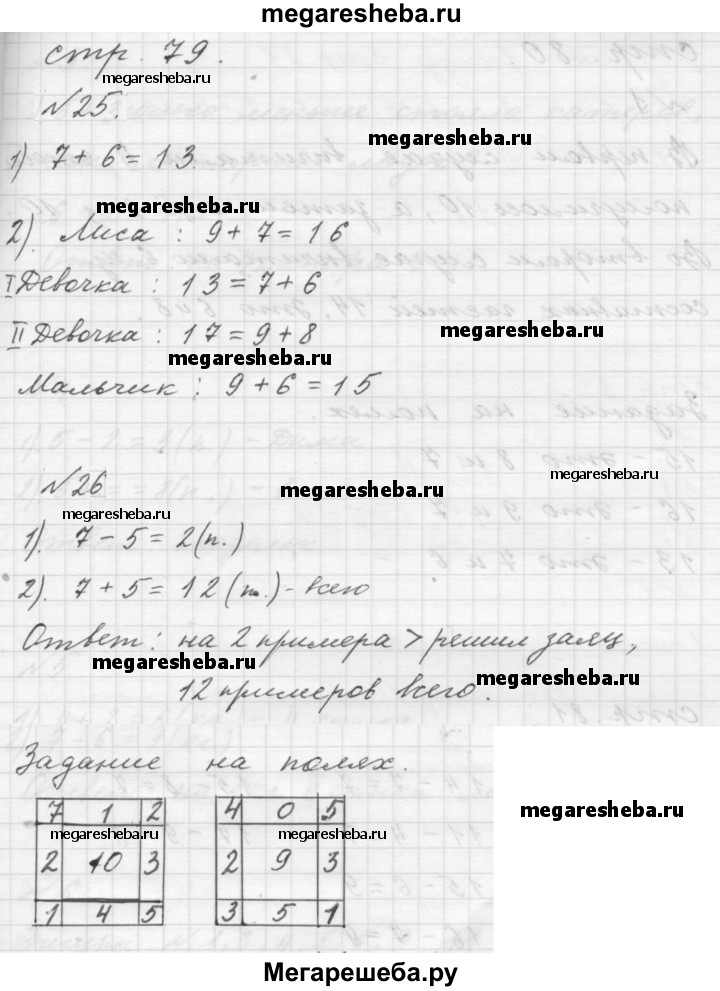 megaresheba.ru
стр. 79.
megaresheba.ru
№25.
megaresheba.ru
1) 7 + 6 = 13.
megaresheba.ru
2). Лиса : 9 + 7 = 16
I Девочка : 13 = 7 + 6
II Девочка : 17 = 9 + 8
megaresheba.ru
megaresheba.ru
Мальчик : 9 + 6 = 15
№26
megaresheba.ru
megaresheba.ru
megaresheba.ru
1). 7 - 5 = 2 (п.)
2). 7 + 5 = 12 (п.) - всего
Ответ : на 2 примера > решил заяц,
megaresheba.ru
megaresheba.ru
12 примеров всего.
Задание на полях.
7 1 2 4 0 5
megaresheba.ru
megaresheba.ru megaresheba.ru
2 10 3 2 9 3
1 4 5 3 5 1
Мегарешеба.ру